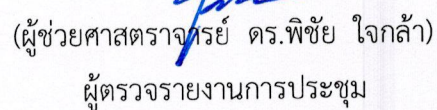 (ผู้ช่วยศาสตราจารย์ ดร.พิชัย ใจกล้า)
ผู้ตรวจรายงานการประชุม